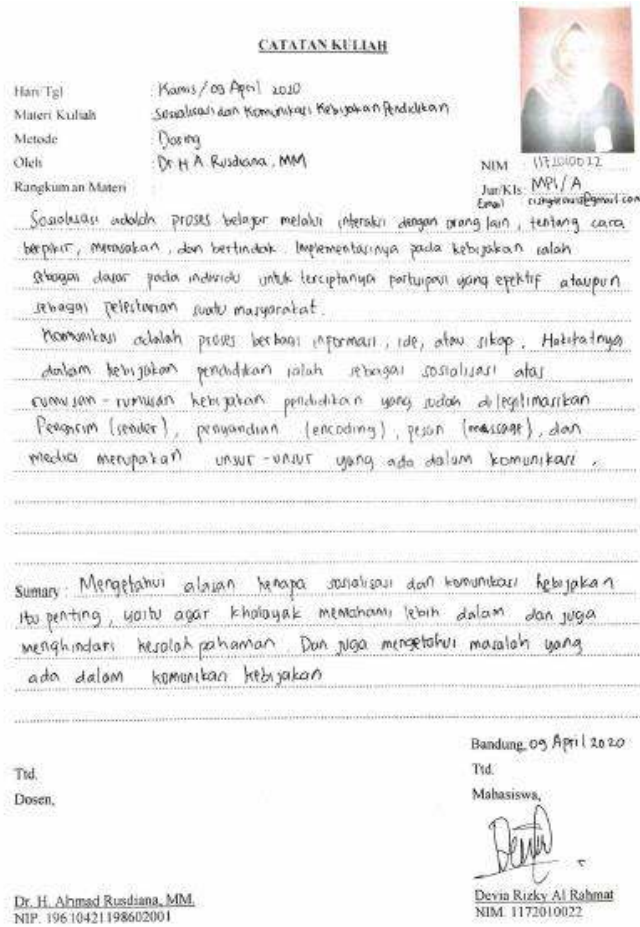 CATATAN KULIAH
Hari/Tgl : Kamis / 09 April 2020
Materi Kuliah : Sosialisasi dan Komunikasi Kebijakan Pendidikan
Metode : Daring
Oleh : Dr. H A. Rusdiana, MM
NIM : 1172010022
Jur/Kls : MPI / A
Email
Rangkuman Materi :
Sosialisasi adalah proses belajar melalui interaksi dengan orang lain, tentang cara
berpikir, merasakan, dan bertindak. Implementasinya pada kebijakan ialah
sebagai dasar pada individu untuk terciptanya partisipasi yang epektif ataupun
sebagai pelestarian suatu masyarakat.
Komunikasi adalah proses berbagi informasi, ide, atau sikap. Hakikatnya
dalam kebijakan pendidikan ialah sebagai sosialisasi atas
rumusan - rumusan kebijakan pendidikan yang sudah dilegitimasikan
Pengirim (sender), penyandian (encoding), pesan (massage), dan
media merupakan unsur - unsur yang ada dalam komunikasi.
Sumary : Mengetahui alasan kenapa sosialisasi dan komunikasi kebijakan
itu penting, yaitu agar khalayak memahami lebih dalam dan juga
menghindari kesalah pahaman. Dan juga mengetahui masalah yang
ada dalam komunikasi kebijakan
Bandung, 09 April 2020
Ttd. Ttd.
Dosen, Mahasiswa,
Dr. H. Ahmad Rusdiana, MM. Devia Rizky Al Rahmat
NIP. 196104211986021001 NIM. 1172010022